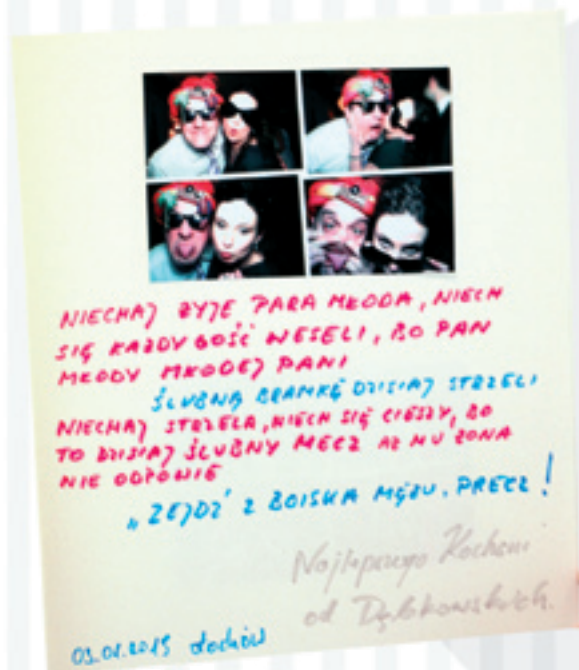 NIECHAJ ŻYJE PARA MŁODA, NIECH
SIĘ KAŻDY GOŚĆ WESELI, BO PAN
MŁODY MŁODEJ PANI
ŚLUBNĄ BRAMKĘ DZISIAJ STRZELI
NIECHAJ STRZELA, NIECH SIĘ CIESZY, BO
TO DZISIAJ ŚLUBNY MECZ AŻ MU ŻONA
NIE ODPOWIE
„ZEJDŹ" Z BOISKA MĘŻU. PRECZ!
Najlepszego Kochani
od Dąbkowskich.